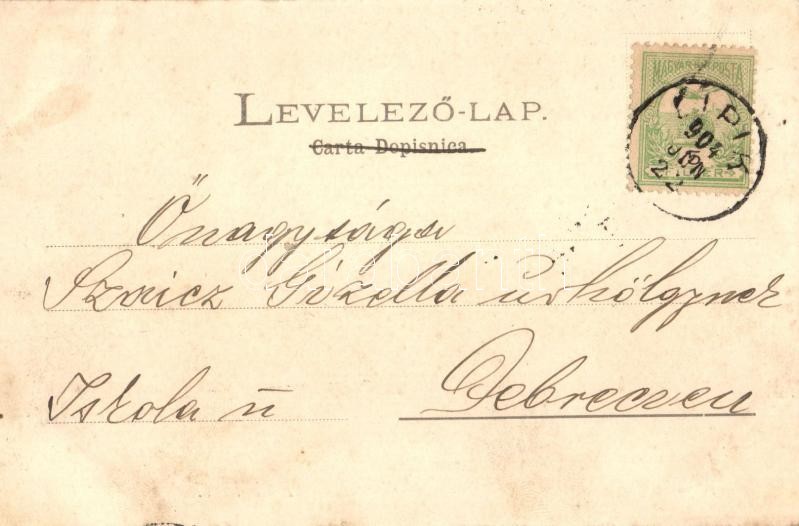 LEVELEZŐ-LAP.
Carta Dopisnica.
MAGYAR KIR. POSTA
904
Őnagysága
Szaicz Gizella úrhölgynek
Iskola u
Debreczen